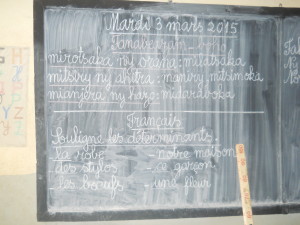 Mardi 3 mars 2015
mirotsaka ny orana: midatsaka
mitsiry ny ahitra: maniry: mitsimoka
mianjera ny hazo: midaraboka
Français
Souligne les déterminants.
- La robe - notre maison
- des stylos - ce garçon
- les bœufs - une fleur